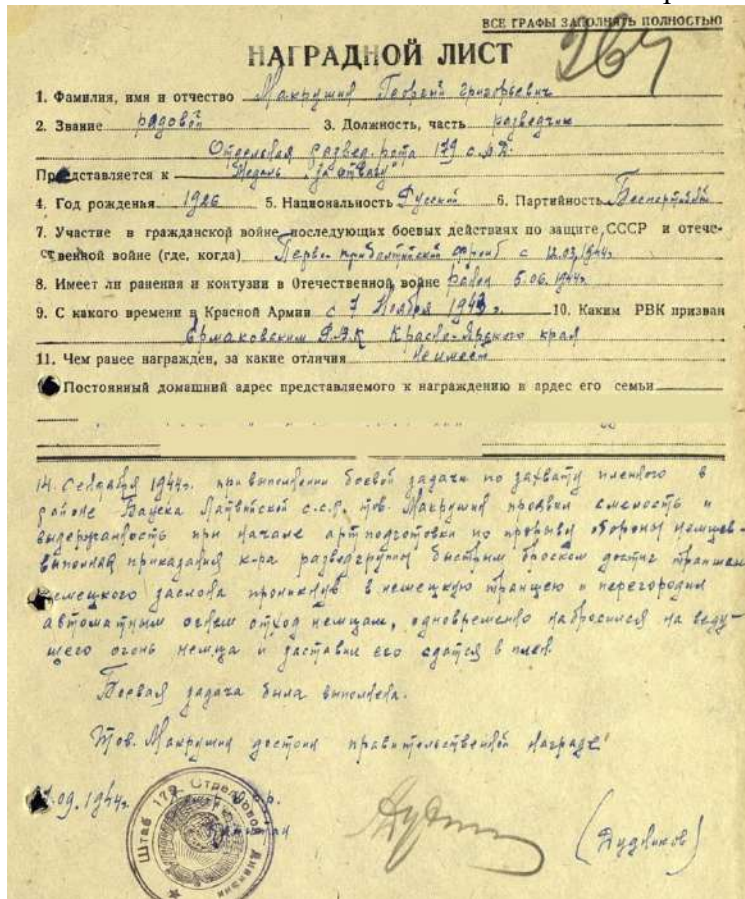 ВСЕ ГРАФЫ ЗАПОЛНЯТЬ ПОЛНОСТЬЮ
264
НАГРАДНОЙ ЛИСТ
1. Фамилия, имя и отчество Макрушин Георгий Григорьевич
2. Звание рядовой 3. Должность, часть разведчик
Отдельная развед. рота 179 с.д.
Представляется к Медаль „за отвагу“
4. Год рождения 1926 5. Национальность Русский 6. Партийность Беспартийный
7. Участие в гражданской войне последующих боевых действиях по защите СССР и отече-
ственной войне (где, когда) Перво-прибалтийский фронт с 12.03.1944г.
8. Имеет ли ранения и контузии в Отечественной войне ранен 5.06.1944г.
9. С какого времени в Красной Армии с 7 Ноября 1943г. 10. Каким РВК призван
Ермаковским РВК Красно-Ярского края
11. Чем ранее награжден, за какие отличия Не имеет
Постоянный домашний адрес представляемого к награждению и ардес его семьи
14. Сентября 1944г. при выполнении боевой задачи по захвату пленного в
районе Бауска Латвийской с.с.р. тов. Макрушин проявил смелость и
выдержанность при начале артподготовки по прорыву обороны немцев-
выполняя приказания к-ра разведгруппы быстрым броском достиг траншеи
немецкого заслона проникнув в немецкую траншею и перегородил
автоматным огнем отход немцам, одновременно набросился на веду-
щего огонь немца и заставил его сдатся в плен.
Боевая задача была выполнена.
Тов. Макрушин достоин правительственной награде
.09.1944г.
Штаб 179 Стрелковой Дивизии
Капитан
(Дудников)